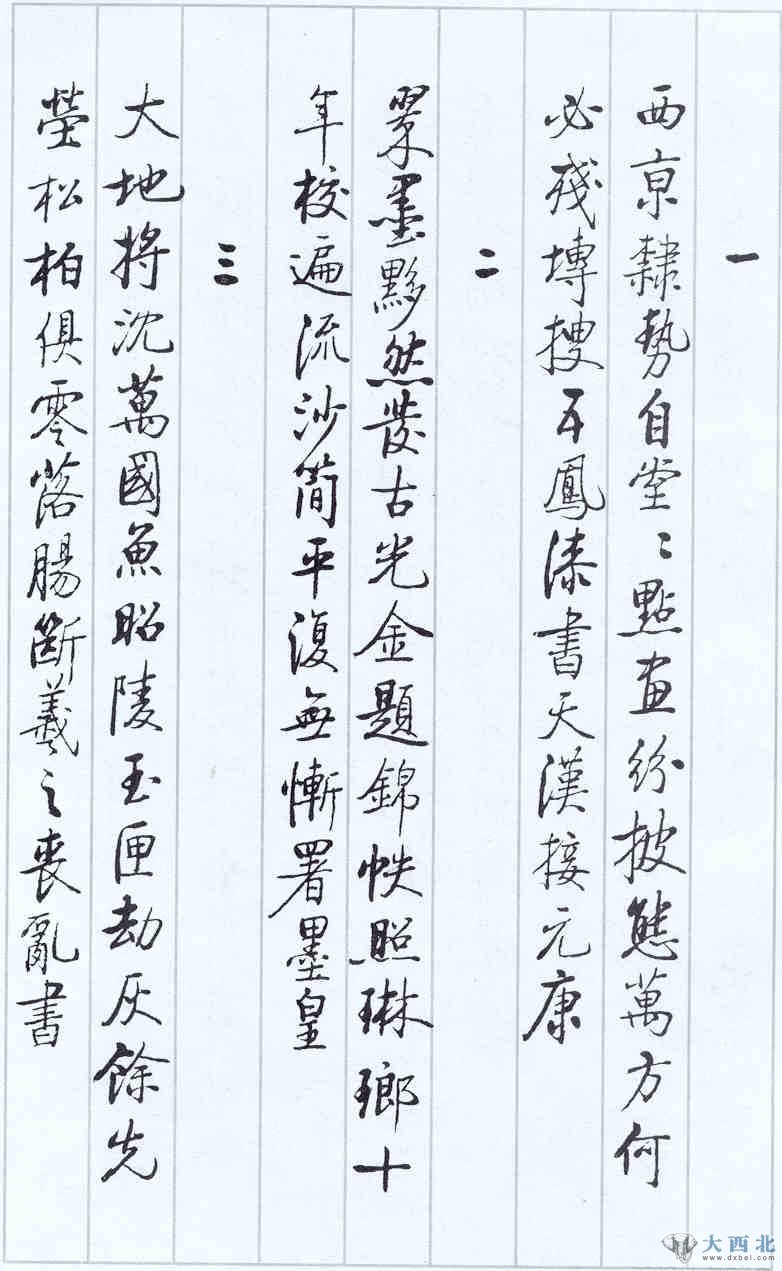 一
西京隸勢自堂〻點畫紛披態萬方何
必殘塼搜五鳳漆書天漢接元康
二
翠墨黟然發古光金題錦帙照琳瑯十
年校遍流沙簡平復無慚署墨皇
三
大地將沈萬國魚昭陵玉匣劫灰餘先
塋松柏俱零落腸斷羲之喪亂書
大西北
www.dxbei.com